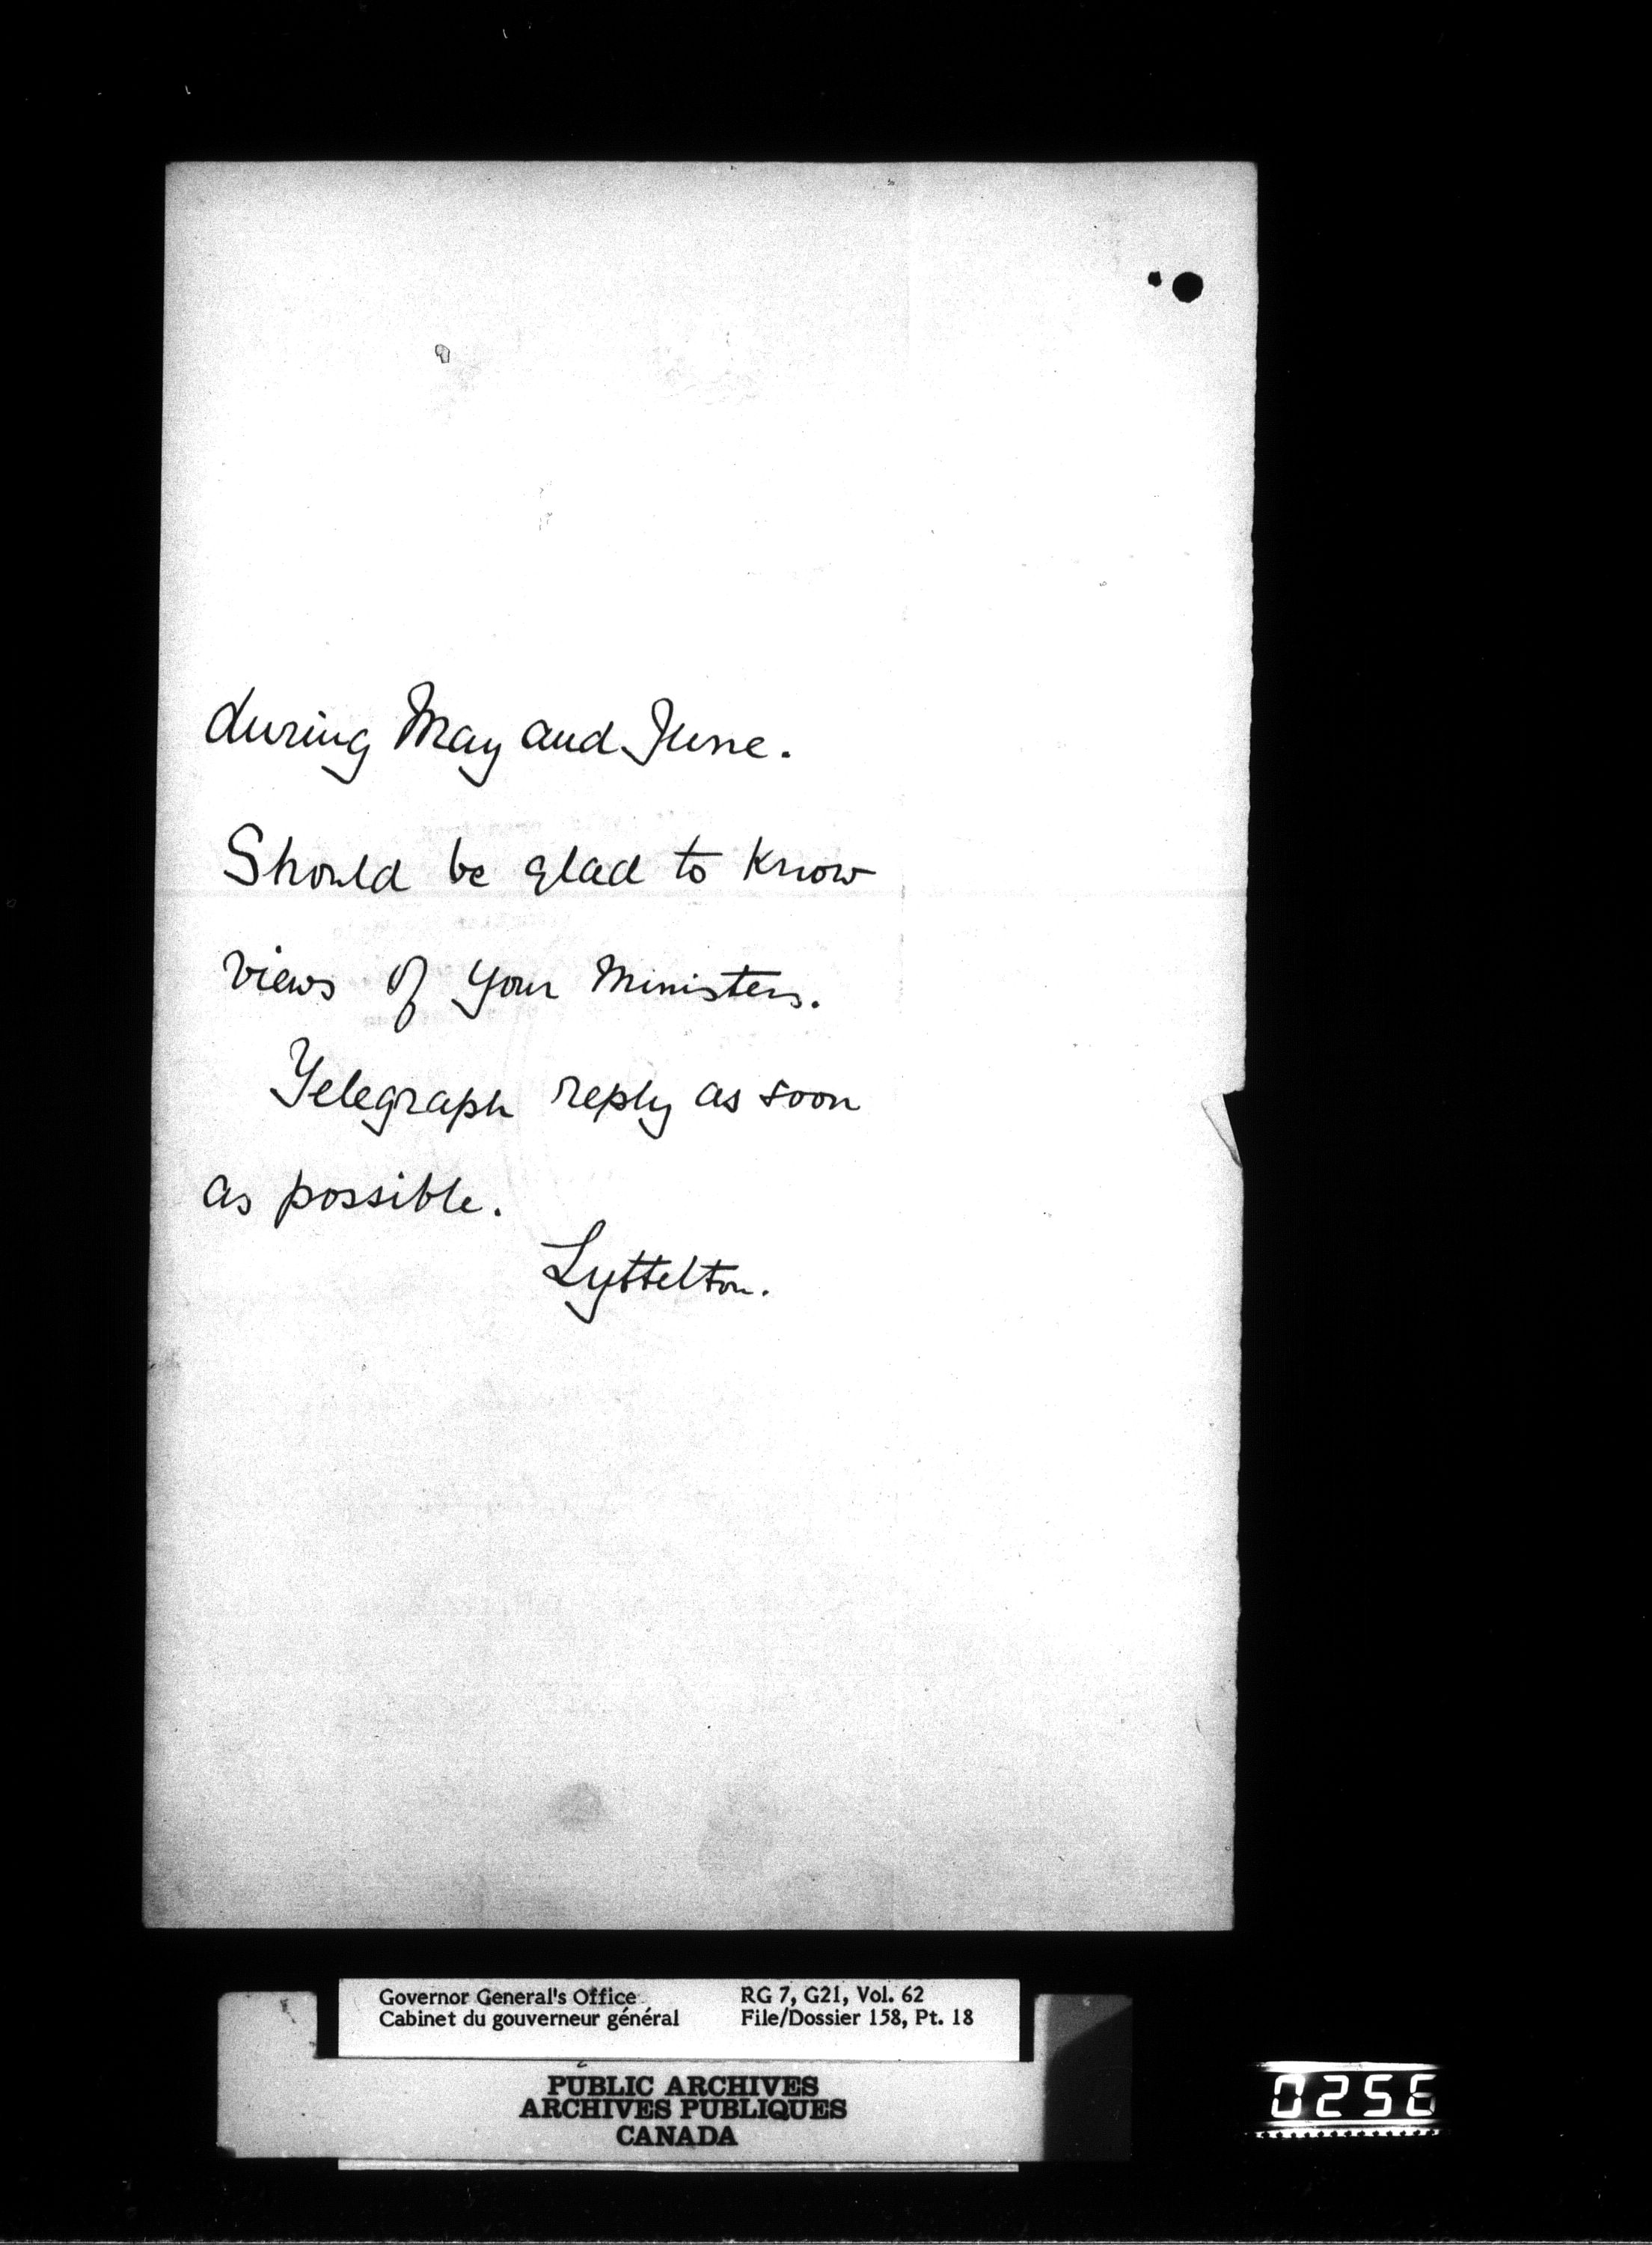 during May and June.
Should be glad to know
views of your Ministers.
Telegraph reply as soon
as possible.
Lyttelton.
Governor General's Office RG 7, G21, Vol. 62
Cabinet du gouverneur général File/Dossier 158, Pt. 18
PUBLIC ARCHIVES
ARCHIVES PUBLIQUES
CANADA